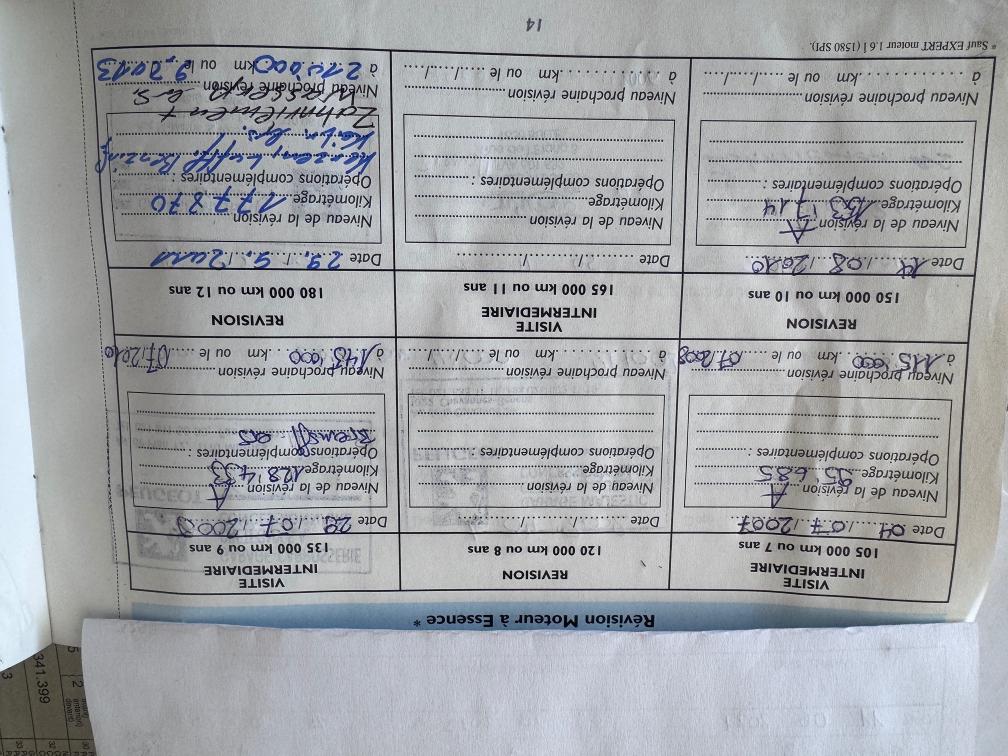 Révision Moteur à Essence *
VISITE
INTERMEDIAIRE
105 000 km ou 7 ans
Date 04 / 07 / 2007
Niveau de la révision A
Kilométrage 95'685
Opérations complémentaires :
Niveau prochaine révision
à 115'000 km ou le 07/2008
REVISION
120 000 km ou 8 ans
Date / /
Niveau de la révision
Kilométrage
Opérations complémentaires :
Niveau prochaine révision
à km ou le / /
VISITE
INTERMEDIAIRE
135 000 km ou 9 ans
Date 29 / 07 / 2008
Niveau de la révision A
Kilométrage 128'433
Opérations complémentaires :
Bremsfl. ers
Niveau prochaine révision
à 145'000 km ou le 07/2010
REVISION
150 000 km ou 10 ans
Date / 08 / 2010
Niveau de la révision A
Kilométrage 153'714
Opérations complémentaires :
Niveau prochaine révision
à km ou le / /
VISITE
INTERMEDIAIRE
165 000 km ou 11 ans
Date / /
Niveau de la révision
Kilométrage
Opérations complémentaires :
Niveau prochaine révision
à km ou le / /
REVISION
180 000 km ou 12 ans
Date 29. / 9. /
Niveau de la révision
Kilométrage 177870
Opérations complémentaires :
Kerzen, Benzinf
Zahnriemen +
Niveau prochaine révision
à 210'000 km ou le 9.2013
* Sauf EXPERT moteur 1.6 l (1580 SPI).
14
PEUGEOT
341.399